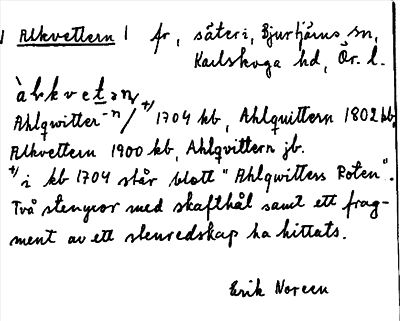 | Alkvettern | fr, säteri, Bjurtjärns sn,
Karlskoga hd, Ör. l.
àlkvetən
Ahlqwitter -n / +) 1704 kb, Ahlquittern 1802 kb,
Alkvettern 1900 kb, Ahlqvittern jb.
+) i kb 1704 står blott "Ahlqwitters Roten".
Två stenyxor med skafthål samt ett frag-
ment av ett stenredskap ha hittats.
Erik Noreen